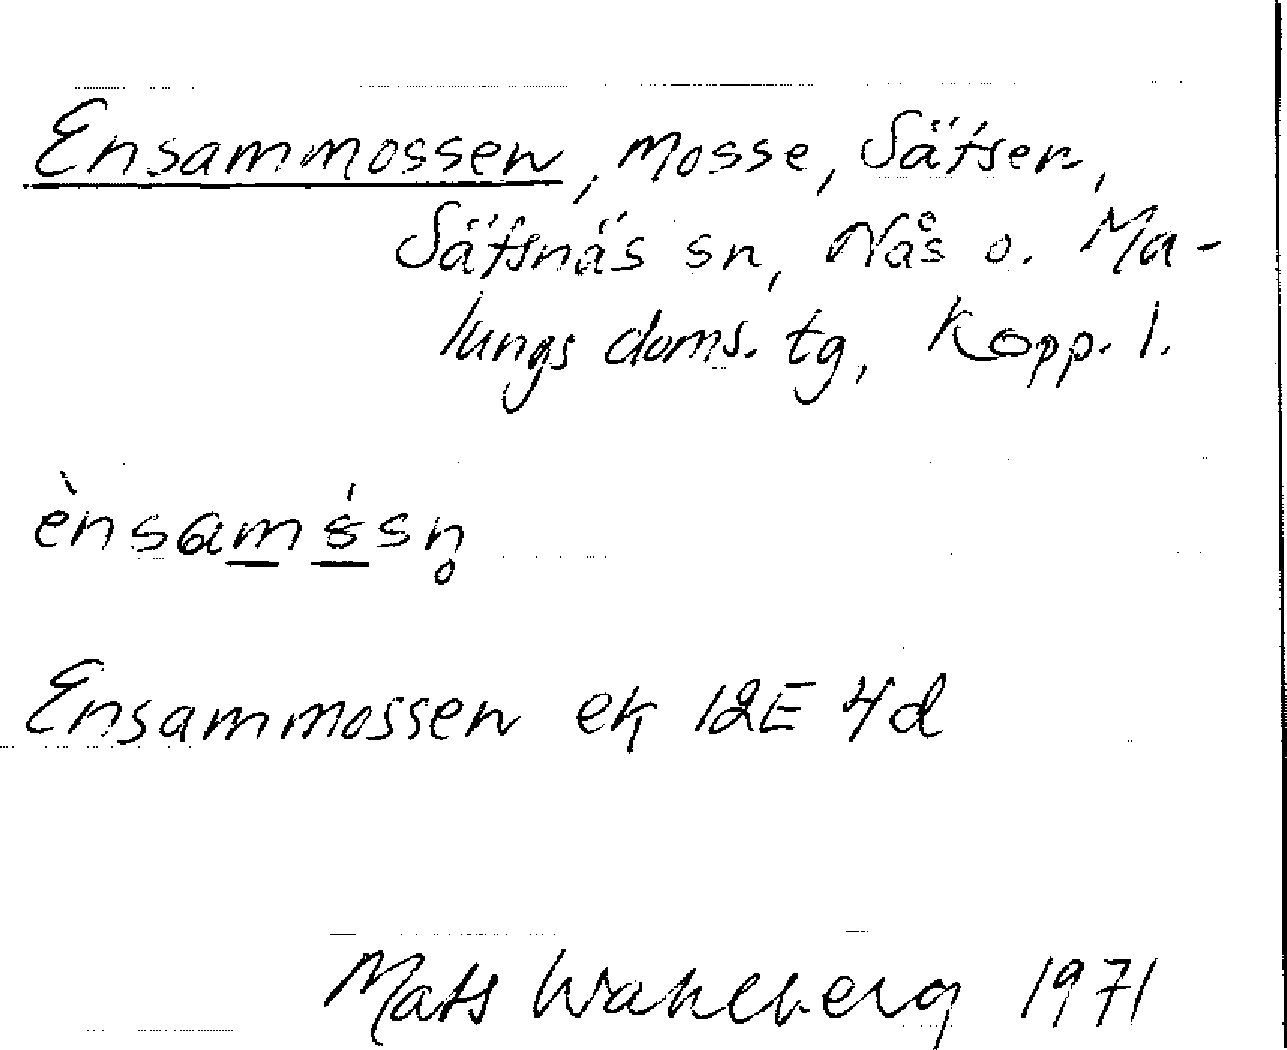 Ensammossen, mosse, Sätsen,
Sätsnäs sn, Nås o. Ma-
lungs doms. tg, Kopp. l.
ènsam ssn̥
Ensammossen ek 12E 4d
Mats Wahlberg 1971